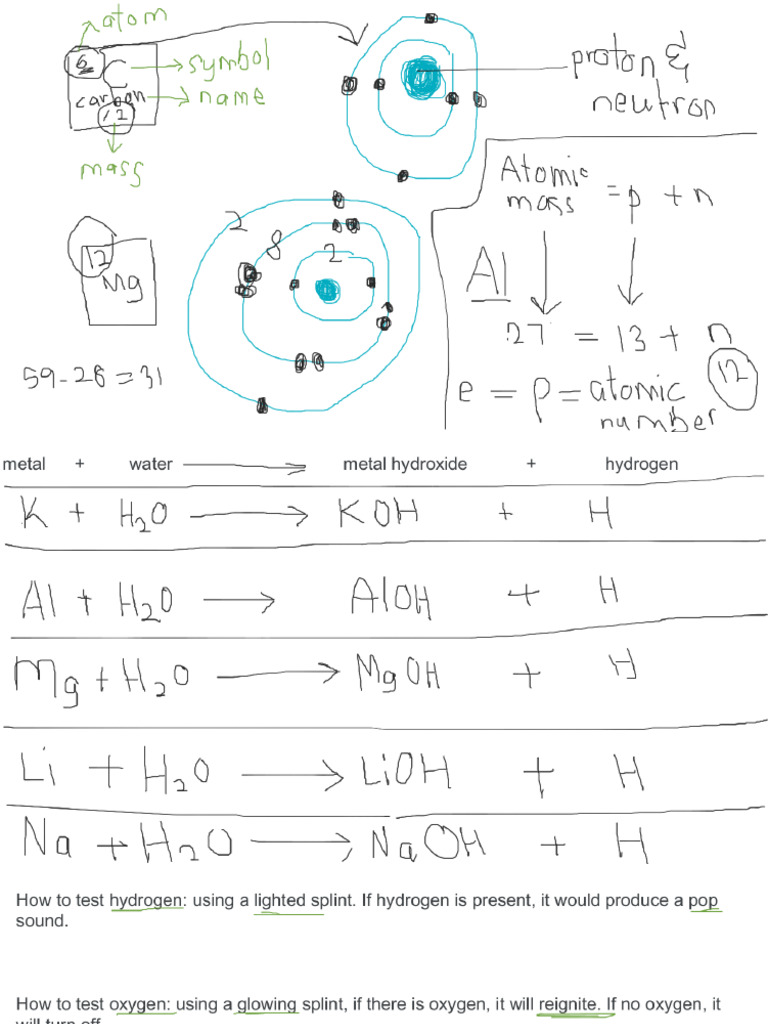 atom
6
C
symbol
carbon
name
12
mass
proton &
neutron
Atomic
mass = p + n
Al
27 = 13 + n
e = p = atomic
number
12
12
Mg
2
8
2
59-28=31
metal + water → metal hydroxide + hydrogen
K + H₂O → KOH + H
Al + H₂O → AlOH + H
Mg + H₂O → MgOH + H
Li + H₂O → LiOH + H
Na + H₂O → NaOH + H
How to test hydrogen: using a lighted splint. If hydrogen is present, it would produce a pop
sound.
How to test oxygen: using a glowing splint, if there is oxygen, it will reignite. If no oxygen, it
will turn off